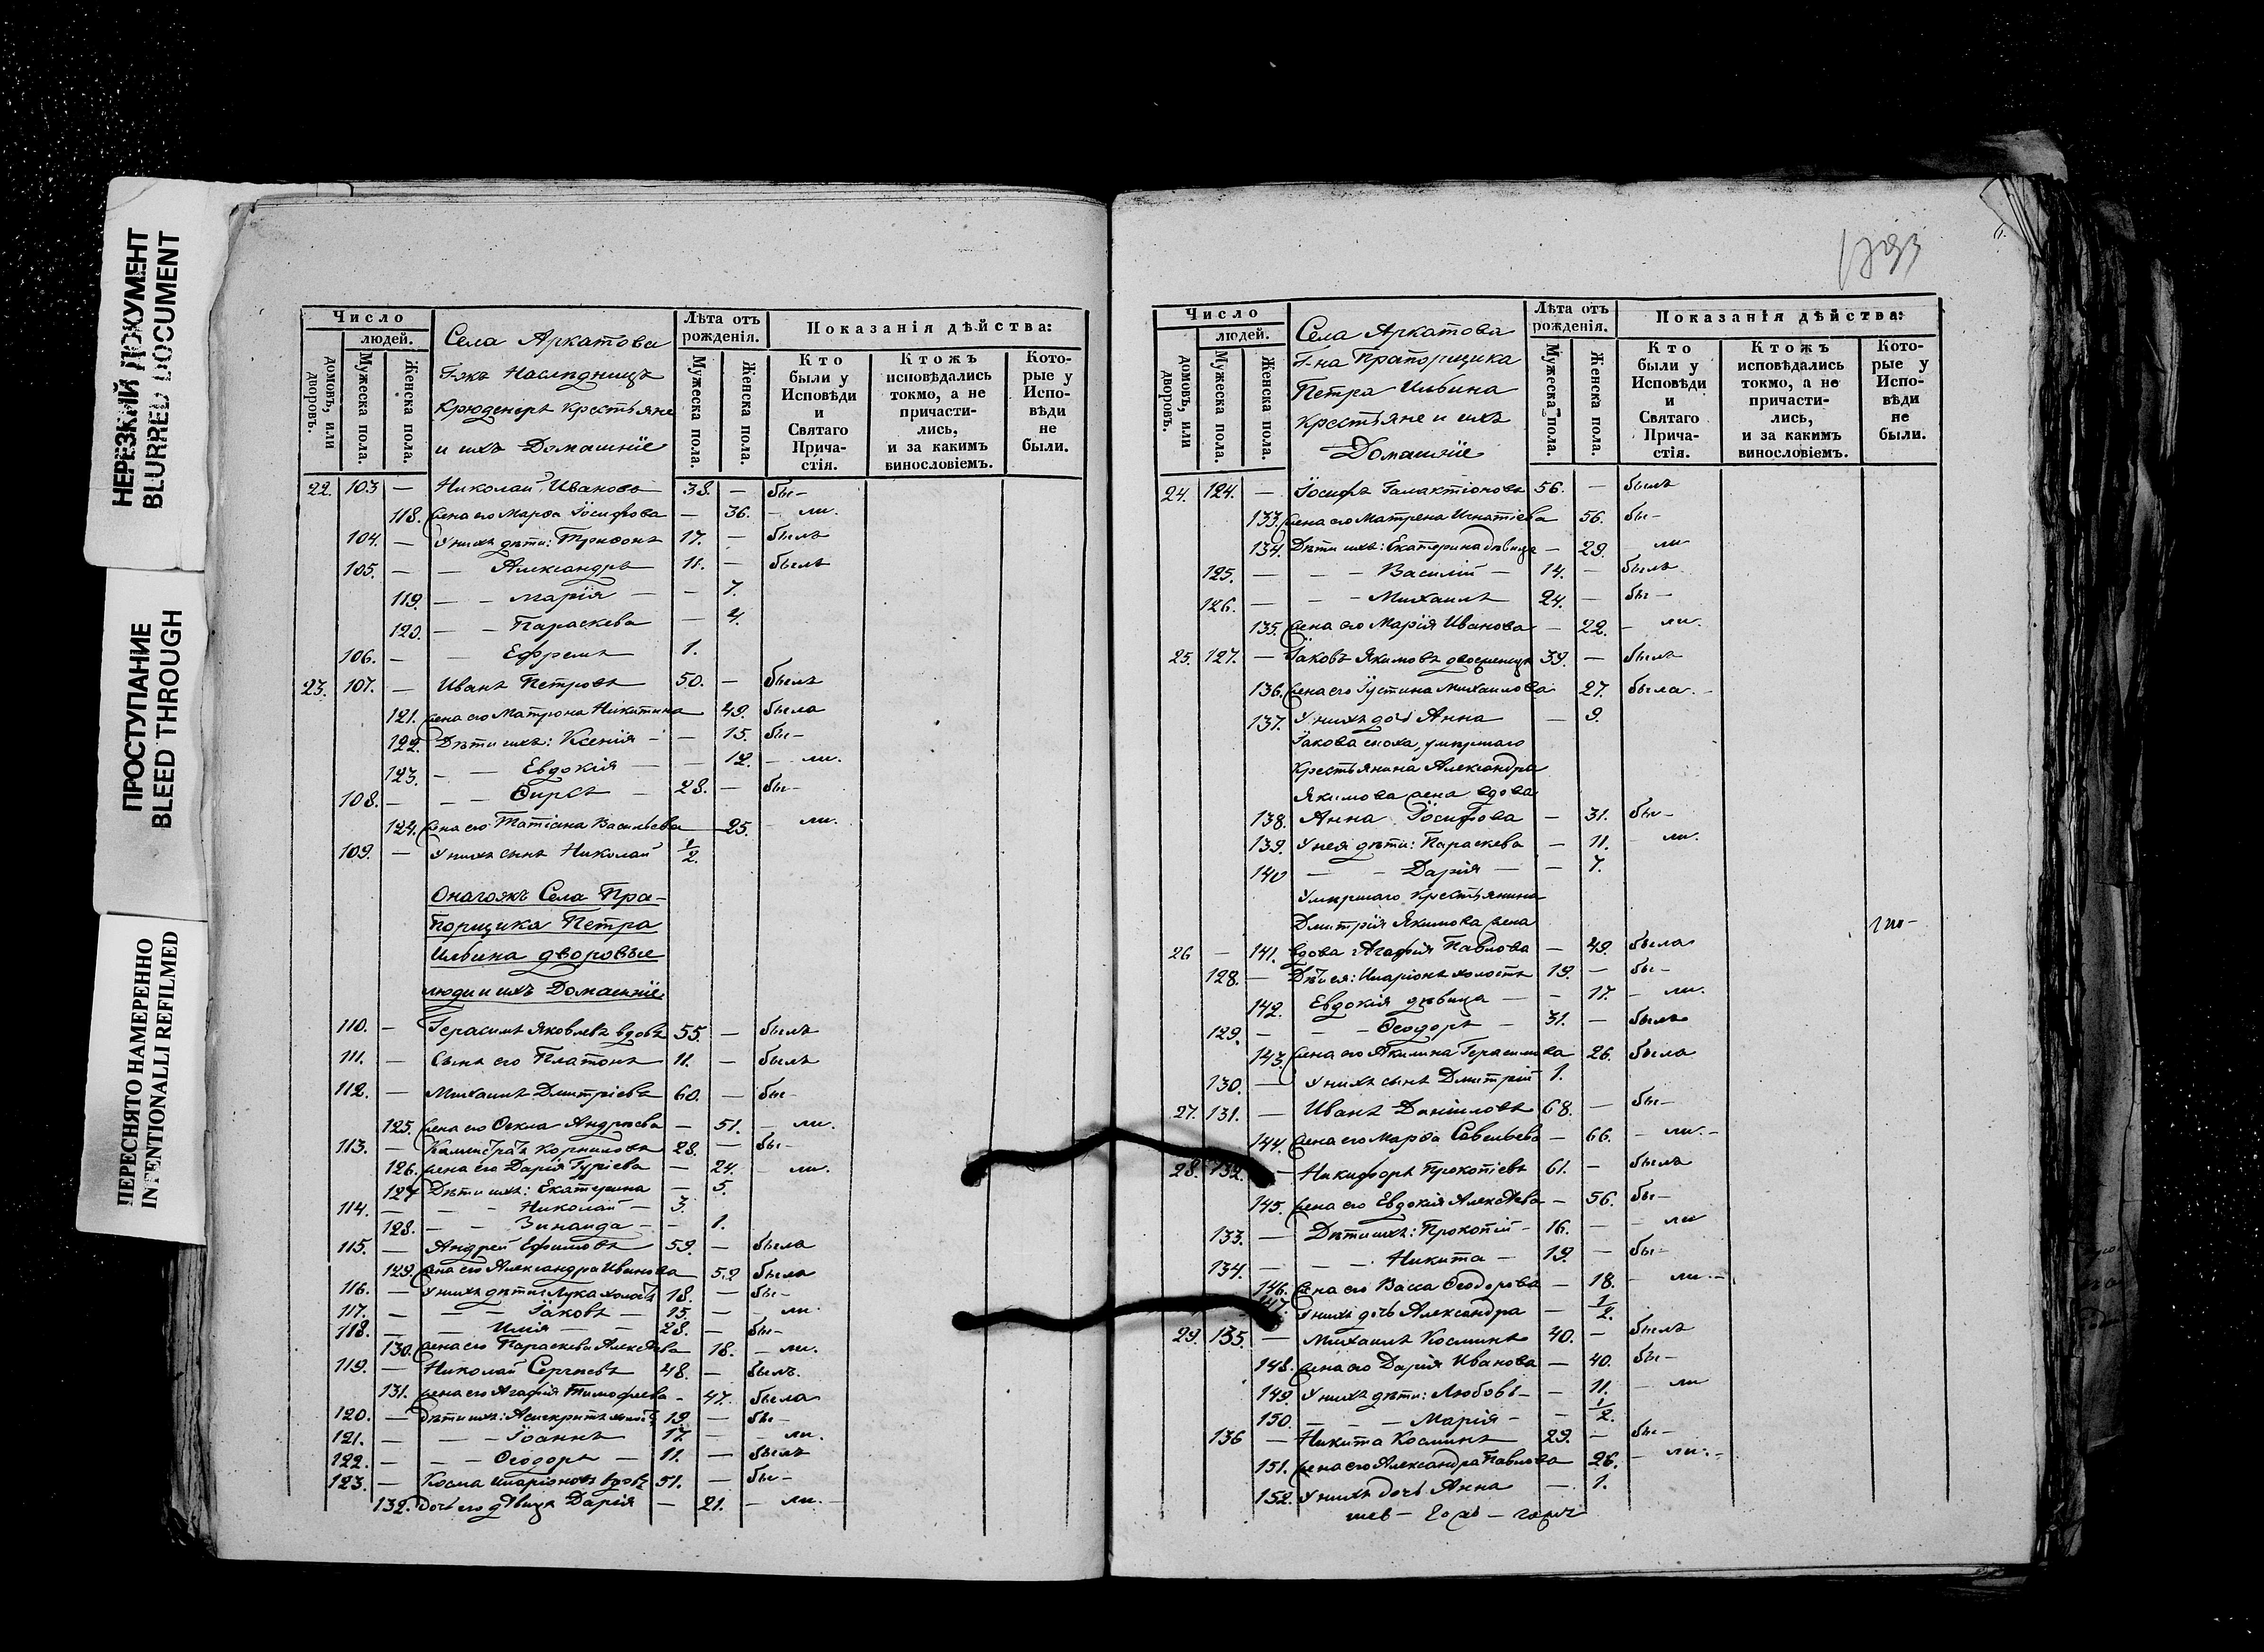 НЕРЕЗКИЙ ДОКУМЕНТ
BLURRED DOCUMENT
ПРОСТУПАНИЕ
BLEED THROUGH
ПЕРЕСНЯТО НАМЕРЕННО
INTENTIONALLI REFILMED
Число
людей.
домовъ, или дворовъ.
Мужеска пола.
Женска пола.
Села Аркатова
Г-жъ Наслѣдницъ
Крюденеръ Крестьяне
и ихъ Домашніе
Лѣта отъ рожденія.
Мужеска пола.
Женска пола.
Показанія дѣйства:
Кто были у Исповѣди и Святаго Причастія.
Ктожъ исповѣдались токмо, а не причастились, и за какимъ винословіемъ.
Которые у Исповѣди не были.
22. 103 — Николай Ивановъ 38. — бы-
118. Жена его Марѳа Іосифова — 36. — ли.
104. — У нихъ дѣти: Трифонъ 17. — былъ
105. — — Александръ 11. — былъ
119. — — Марія — — 7.
120. — — Параскева — 4.
106. — — Ефремъ 1.
23. 107. — Иванъ Петровъ 50. — былъ
121. Жена его Матрона Никитина 49. была
122. Дѣти ихъ: Ксенія — — 15. бы-
123. — — Евдокія — — 12. — ли.
108. — — — Ѳирсъ — 28. — бы-
124. Жена его Татіана Васильева — 25. — ли.
109. — У нихъ сынъ Николай 1/2.
Онагожъ Села Пра-
порщика Петра
Ильина дворовые
люди и ихъ Домашніе
110. — Герасимъ Яковлевъ вдовъ 55. — былъ
111. — Сынъ его Платонъ 11. — былъ
112. — Михаилъ Дмитріевъ 60. — бы-
125. Жена его Ѳекла Андреева — 51. — ли.
113. — Калистратъ Корниловъ 28. — бы-
126. Жена его Дарія Гуріева — 24. — ли.
127 Дѣти ихъ: Екатерина — 5.
114. — — — Николай — 3.
128. — — Зинаида — — 1.
115. — Андрей Ефимовъ 59. — была
129. Жена его Александра Иванова 52 была
116. — У нихъ дѣти: Лука холостъ 18. — бы-
117. — — — Іаковъ — 15. — — ли.
118. — — Илія — — 28. — бы-
130. Жена его Параскева Алексѣева 18. — ли.
119. — Николай Сергѣевъ 48. — былъ.
131. Жена его Агафія Тимофеева — 47. была
120. — Дѣти ихъ: Асинкритъ 19 — бы-
121. — — — Іоаннъ — 17. — — ли.
122. — — — Ѳеодоръ — 11. — былъ
123. — Косма Иларіоновъ вдовъ 51. — бы-
132. Дочь его дѣвица Дарія — 21. — ли. —
Число
людей.
домовъ, или дворовъ.
Мужеска пола.
Женска пола.
Села Аркатова
Г-на Прапорщика
Петра Ильина
крестьяне и ихъ
Домашніе
Лѣта отъ рожденія.
Мужеска пола.
Женска пола.
Показанія дѣйства:
Кто были у Исповѣди и Святаго Причастія.
Ктожъ исповѣдались токмо, а не причастились, и за какимъ винословіемъ.
Которые у Исповѣди не были.
24. 124. — Іосифъ Галактіоновъ 56. — былъ
133. Жена его Матрена Игнатіева 56. бы-
134. Дѣти ихъ: Екатерина дѣвица — 29. — ли
125. — — — Василій — 14. — былъ
126. — — — Михаилъ 24. — бы-
135. Жена его Марія Иванова — 22. — ли.
25. 127. — Іаковъ Якимовъ двоеженецъ 39. — былъ
136. Жена его Іустина Михаилова 27. была. -
137. У нихъ дочь Анна — 9.
Іакова сноха, умершаго
Крестьянина Александра
Якимова жена вдова
138. Анна Іосифова — 31. бы-
139. У нея дѣти: Параскева — 11. — ли.
140 — — Дарія — — 7.
Умершаго Крестьянина
Дмитрія Якимова жена
26 — 141. вдова Агафія Павлова — 49. была
128. — Дѣти ея: Иларіонъ холостъ 19. — бы-
142. Евдокія дѣвица — — 17. — ли.
129. — — — Ѳеодоръ — 31. — былъ
143. Жена его Акилина Герасимова 26. была
130. — У нихъ сынъ Дмитрій 1.
27. 131. — Иванъ Даніиловъ 68. — бы-
144. Жена его Марѳа Савельева — 66. — ли. -
28. 132. — Никифоръ Прокопіевъ 61. — былъ
145. Жена его Евдокія Алексѣева — 56. бы-
133. — Дѣти ихъ: Прокопій — 16. — — ли
134. — — — Никита — 19. — бы-
146. Жена его Васса Ѳеодорова — 18. — ли. -
147. У нихъ дочь Александра — 1/2.
29. 135. — Михаилъ Косминъ 40. — былъ
148. Жена его Дарія Иванова — 40. бы-
149. У нихъ дѣти: Любовь — — 11. — ли
150. — — — Марія — — 1/2.
136 — Никита Косминъ 29. — бы-
151. Жена его Александра Павлова 26. — ли. -
152. У нихъ дочь Анна — 1.